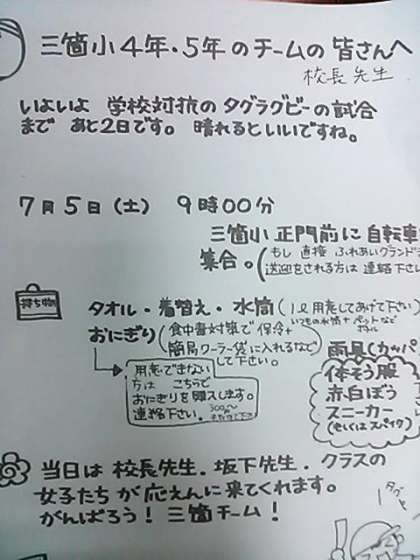 三箇小4年・5年のチームの皆さんへ
校長先生
いよいよ 学校対抗のタグラグビーの試合
まで あと2日です。 晴れるといいですね。
7月5日(土) 9時00分
三箇小 正門前に 自転車
集合。(もし 直接 ふれあいグランド
送迎をされる方は 連絡下さい
持ち物
タオル・着替え・水筒(1ℓ用意してあげて下さい)
いつもの水筒+ペットなど
おにぎり(食中毒対策で 保冷+
簡易クーラー袋に入れるなど
して下さい。
用意できない
方は こちらで
おにぎりを購入します。
連絡下さい。
雨具(カッパ
体そう服
赤白ぼう
スニーカー
(もしくはスパイク)
当日は 校長先生. 坂下先生. クラスの
女子たち が 応えんに来てくれます。
がんばろう! 三箇チーム!